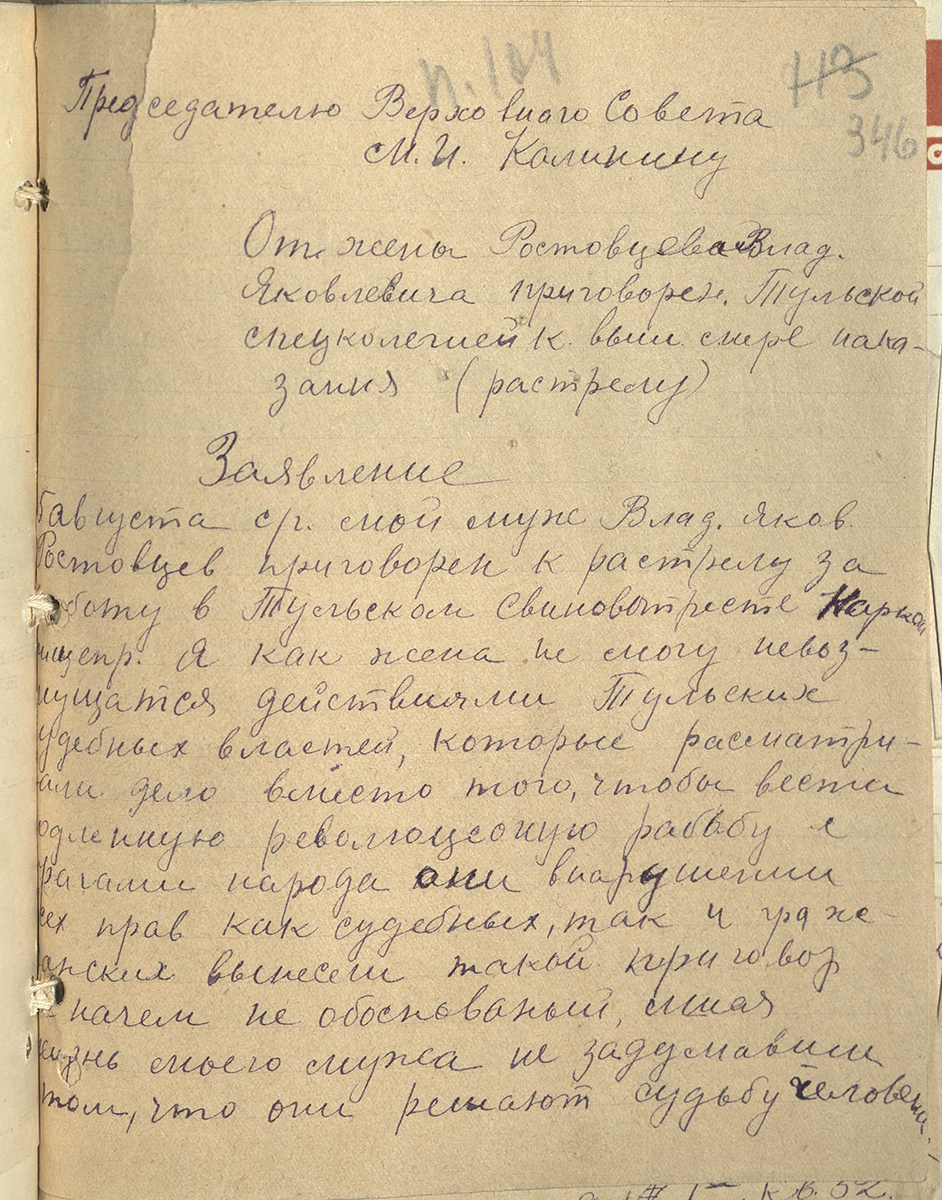 п. 104
713
346
Председателю Верховного Совета
М. И. Калинину
От жены Ростовцева Влад.
Яковлевича приговорен. Тульской
спецколегией к высш. мере нака-
зания (растрелу)
Заявление
августа с/г. мой муж Влад. Яков.
Ростовцев приговорен к растрелу за
боту в Тульском Свиноводтресте Нарком
пищепр. Я как жена не могу невоз-
мущатся действиями Тульских
удебных властей, которые расматри-
али дело вместо того, чтобы вести
одленную революцеоную рабобу с
рагами народа они внарушении
сех прав как судебных, так и граж-
анских вынесли такой приговор
начем не обоснованый, лишая
жизнь моего мужа не задумавши
том, что они решают судьбу человека.